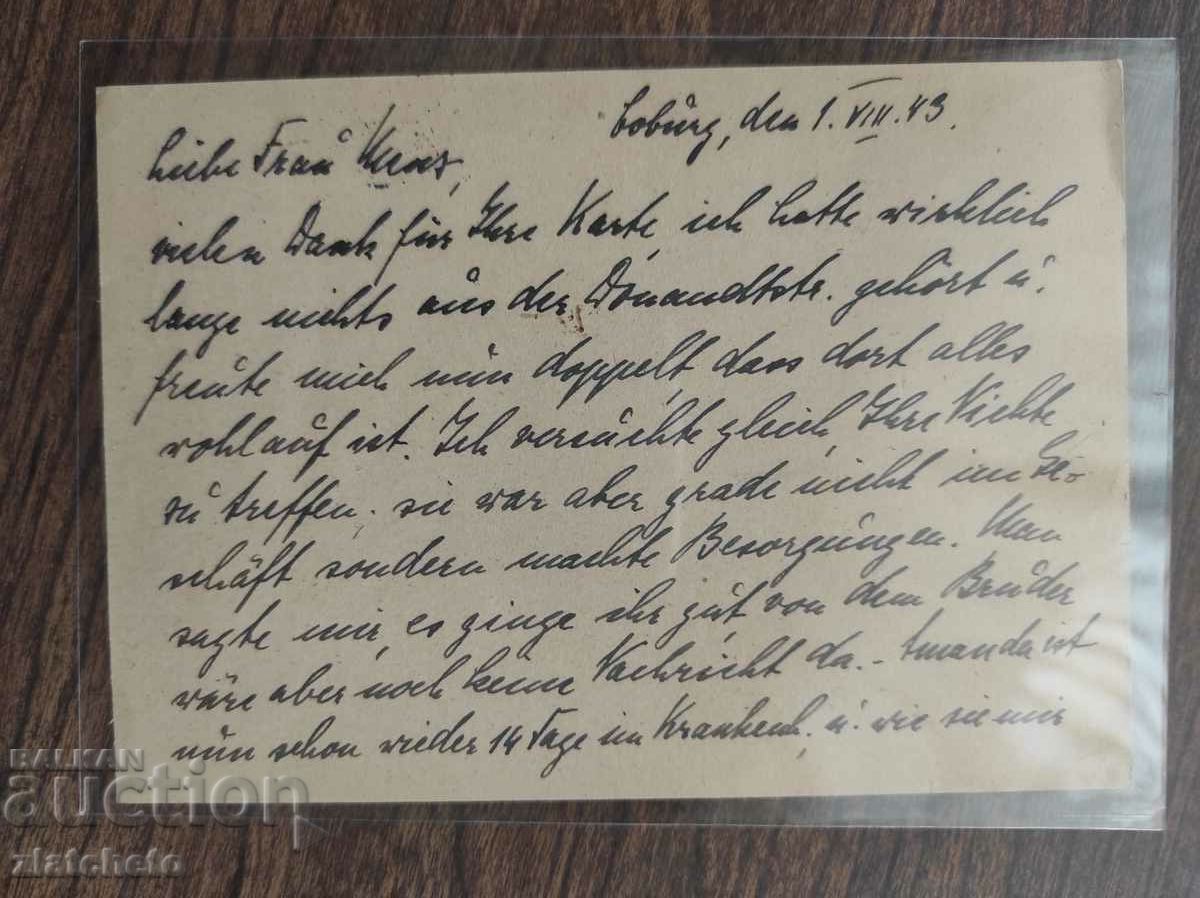 Coburg, den 1. VIII. 43.
Liebe Frau
vielen Dank für Ihre Karte, ich hatte wirklich
lange nichts aus der Donandtstr. gehört u.
freute mich nun doppelt, dass dort alles
wohlauf ist. Ich versuchte gleich, Ihre Nichte
zu treffen. sie war aber grade nicht im Ge-
schäft sondern machte Besorgungen. Man
sagte mir, es ginge ihr gut, von dem Bruder
wäre aber noch keine Nachricht da. - Amanda ist
nun schon wieder 14 Tage im Krankenh. u. wie sie mir
BALKAN
auction
zlatcheto